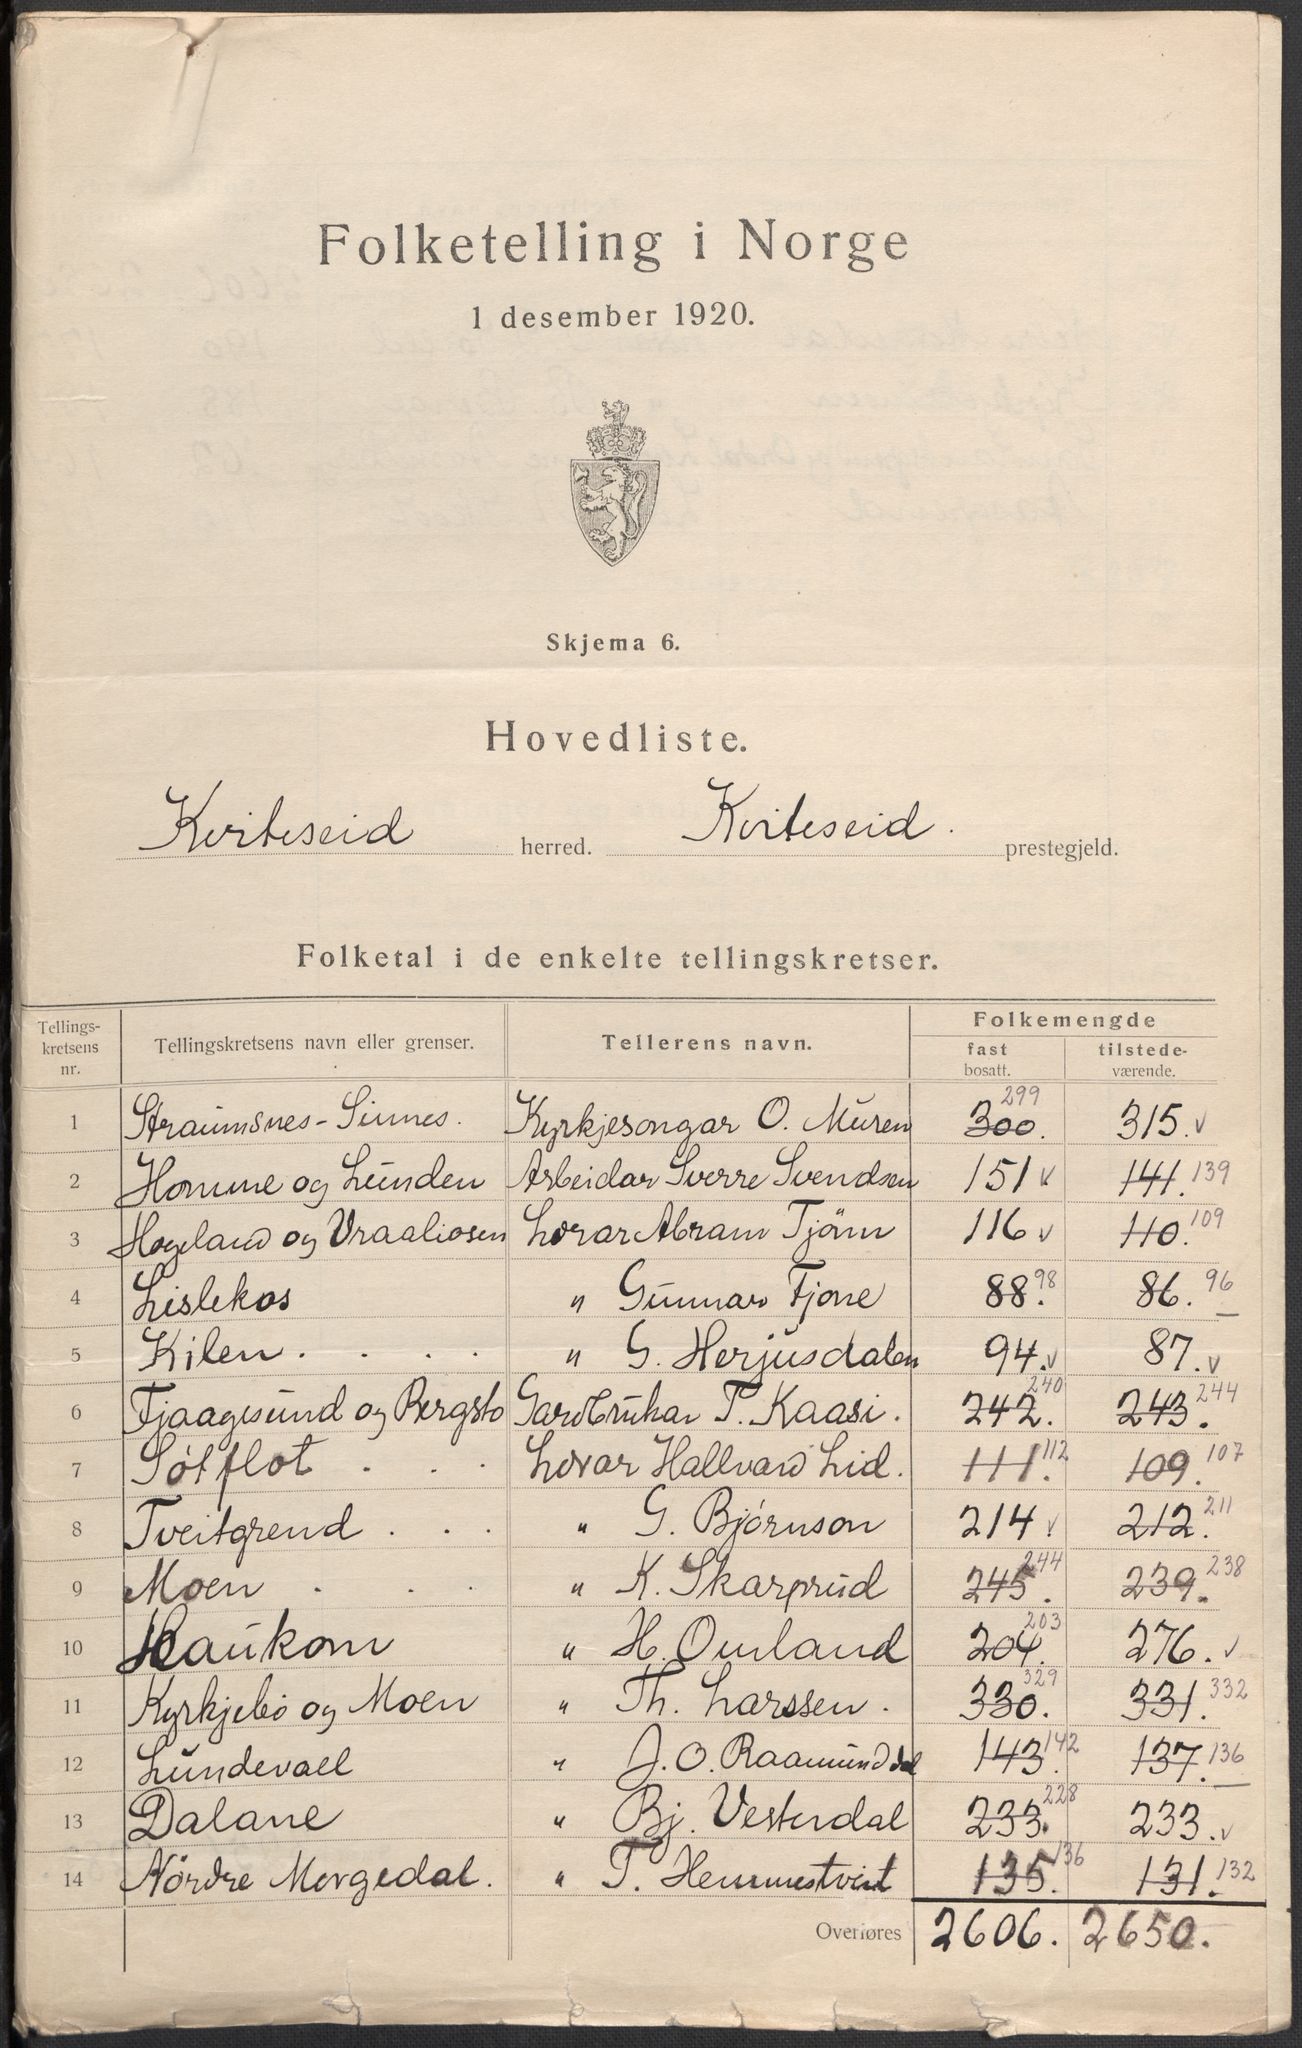 Folketelling i Norge
1 desember 1920.
Skjema 6.
Hovedliste.
Kviteseid herred. Kviteseid. prestegjeld.
Folketal i de enkelte tellingskretser.
Tellings-kretsens nr. Tellingskretsens navn eller grenser. Tellerens navn. Folkemengde fast bosatt. tilstede-værende.
1 Straumsnes-Sinnes. Kyrkjesongar O. Muren 300. 299 315. v
2 Homme og Lunden Arbeidar Sverre Svendsen 151 v 141. 139
3 Hogeland og Vraaliosen Lærar Abram Tjönn 116 v 110. 109
4 Lislekos " Gunnar Fjone 88. 98 86. 96
5 Kilen . . . . " G. Herjusdalen 94. v 87. v
6 Fjaagesund og Bergsto Gardbrukar T. Kaasi. 242. 240 243. 244
7 Søtflot . . . Lærar Hallvard Lid. 111. 112 109. 107
8 Tveitgrend . . . " G. Bjørnson 214 v 212. 211
9 Moen . . . " K. Skarprud 245. 244 239. 238
10 Haukom " H. Omland 204. 203 276. v
11 Kyrkjebø og Moen " Th. Larssen. 330. 329 331. 332
12 Lundevall " J. O. Raamunddal 143. 142 137. 136
13 Dalane " Bj. Vesterdal 233. 228 233. v
14 Nördre Morgedal. " T. Hemmestveit 135. 136 131. 132
Overføres 2606. 2650.